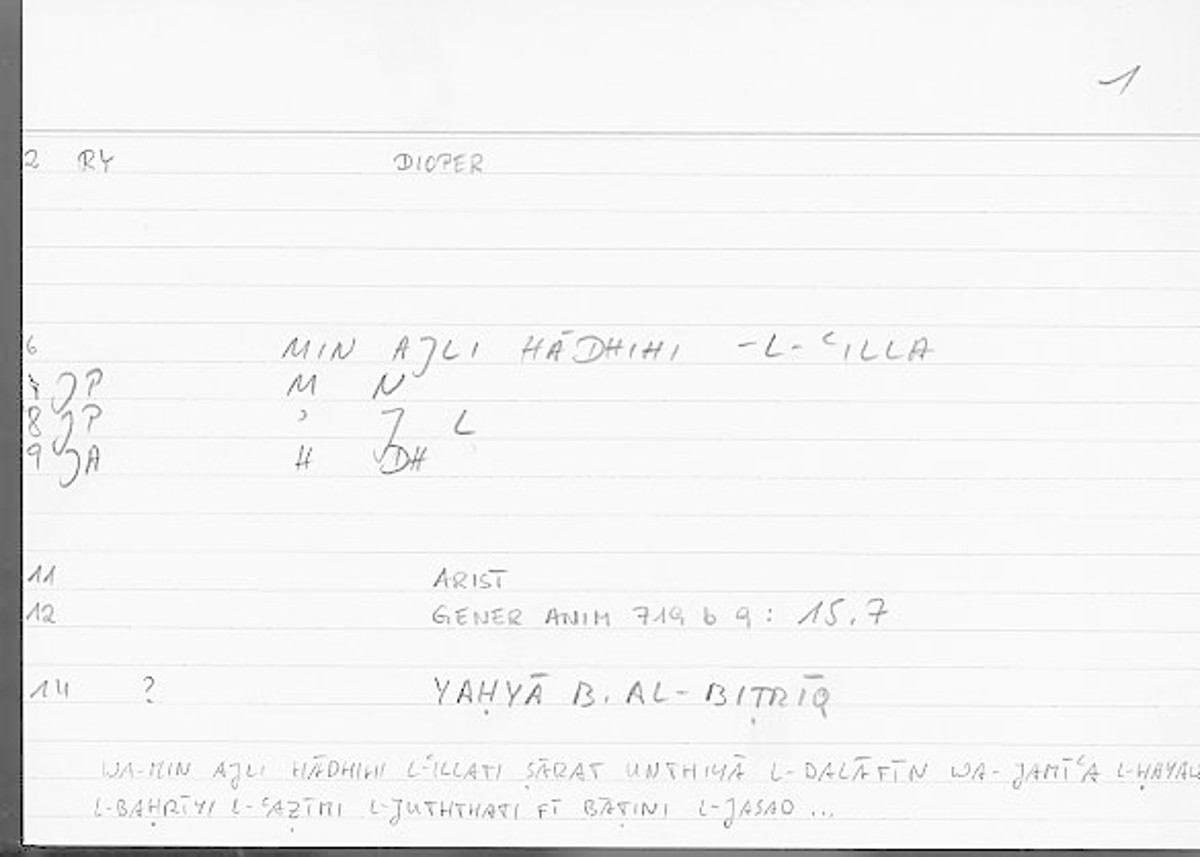 1
2 RY DIOPER
6 MIN AJLI HĀDHIHI -L-ʿILLA
7 JP M N
8 JP ʾ J L
9 JA H DH
11 ARIST
12 GENER ANIM 719 b 9 : 15,7
14 ? YAḤYĀ B. AL-BIṬRĪQ
WA-MIN AJLI HĀDHIHI L-ʿILLATI ṢĀRAT UNTHIYĀ L-DALĀFĪN WA-JAMĪʿA
L-BAḤRĪYI L-ʿAẒĪMI L-JUTHTHATI FĪ BĀṬINI L-JASAD ...